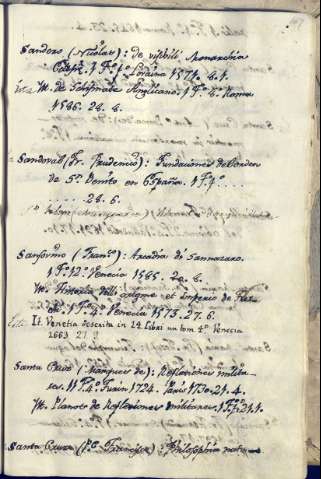 Sandero (Nicolas): de visibili Monarchia
Eccles. 1 Tº fº Lovaina 1571. 8.1.
Ytt. de Schismate Anglicano. 1 Tº 8º Roma
1586. 28. 8.
Sandoval (Fr. Prudencio): Fundaciones del orden
de Sⁿ. Benito en España. 1 Tº fº
28. 6.
Sansovino (Franº): Arcadia di Sannazaro.
1 Tº 12º Venecia 1585. 28. 8.
Yt. Historia dell' origine et imperio de
1 Tº 4º Venecia 1573. 27. 6.
It. Venetia descrita in 14 libri un tom 4º Venecia
1663 27 8
Santa Cruz (Marques de): Reflexiones milita
res. 11 Tº 4º Turin 1724. Paris 1730. 21. 4.
Yt. Planos de Reflexiones militares. 1 Tº fº 21.1.
Santa Cruz (P. Francisco): Philosophia